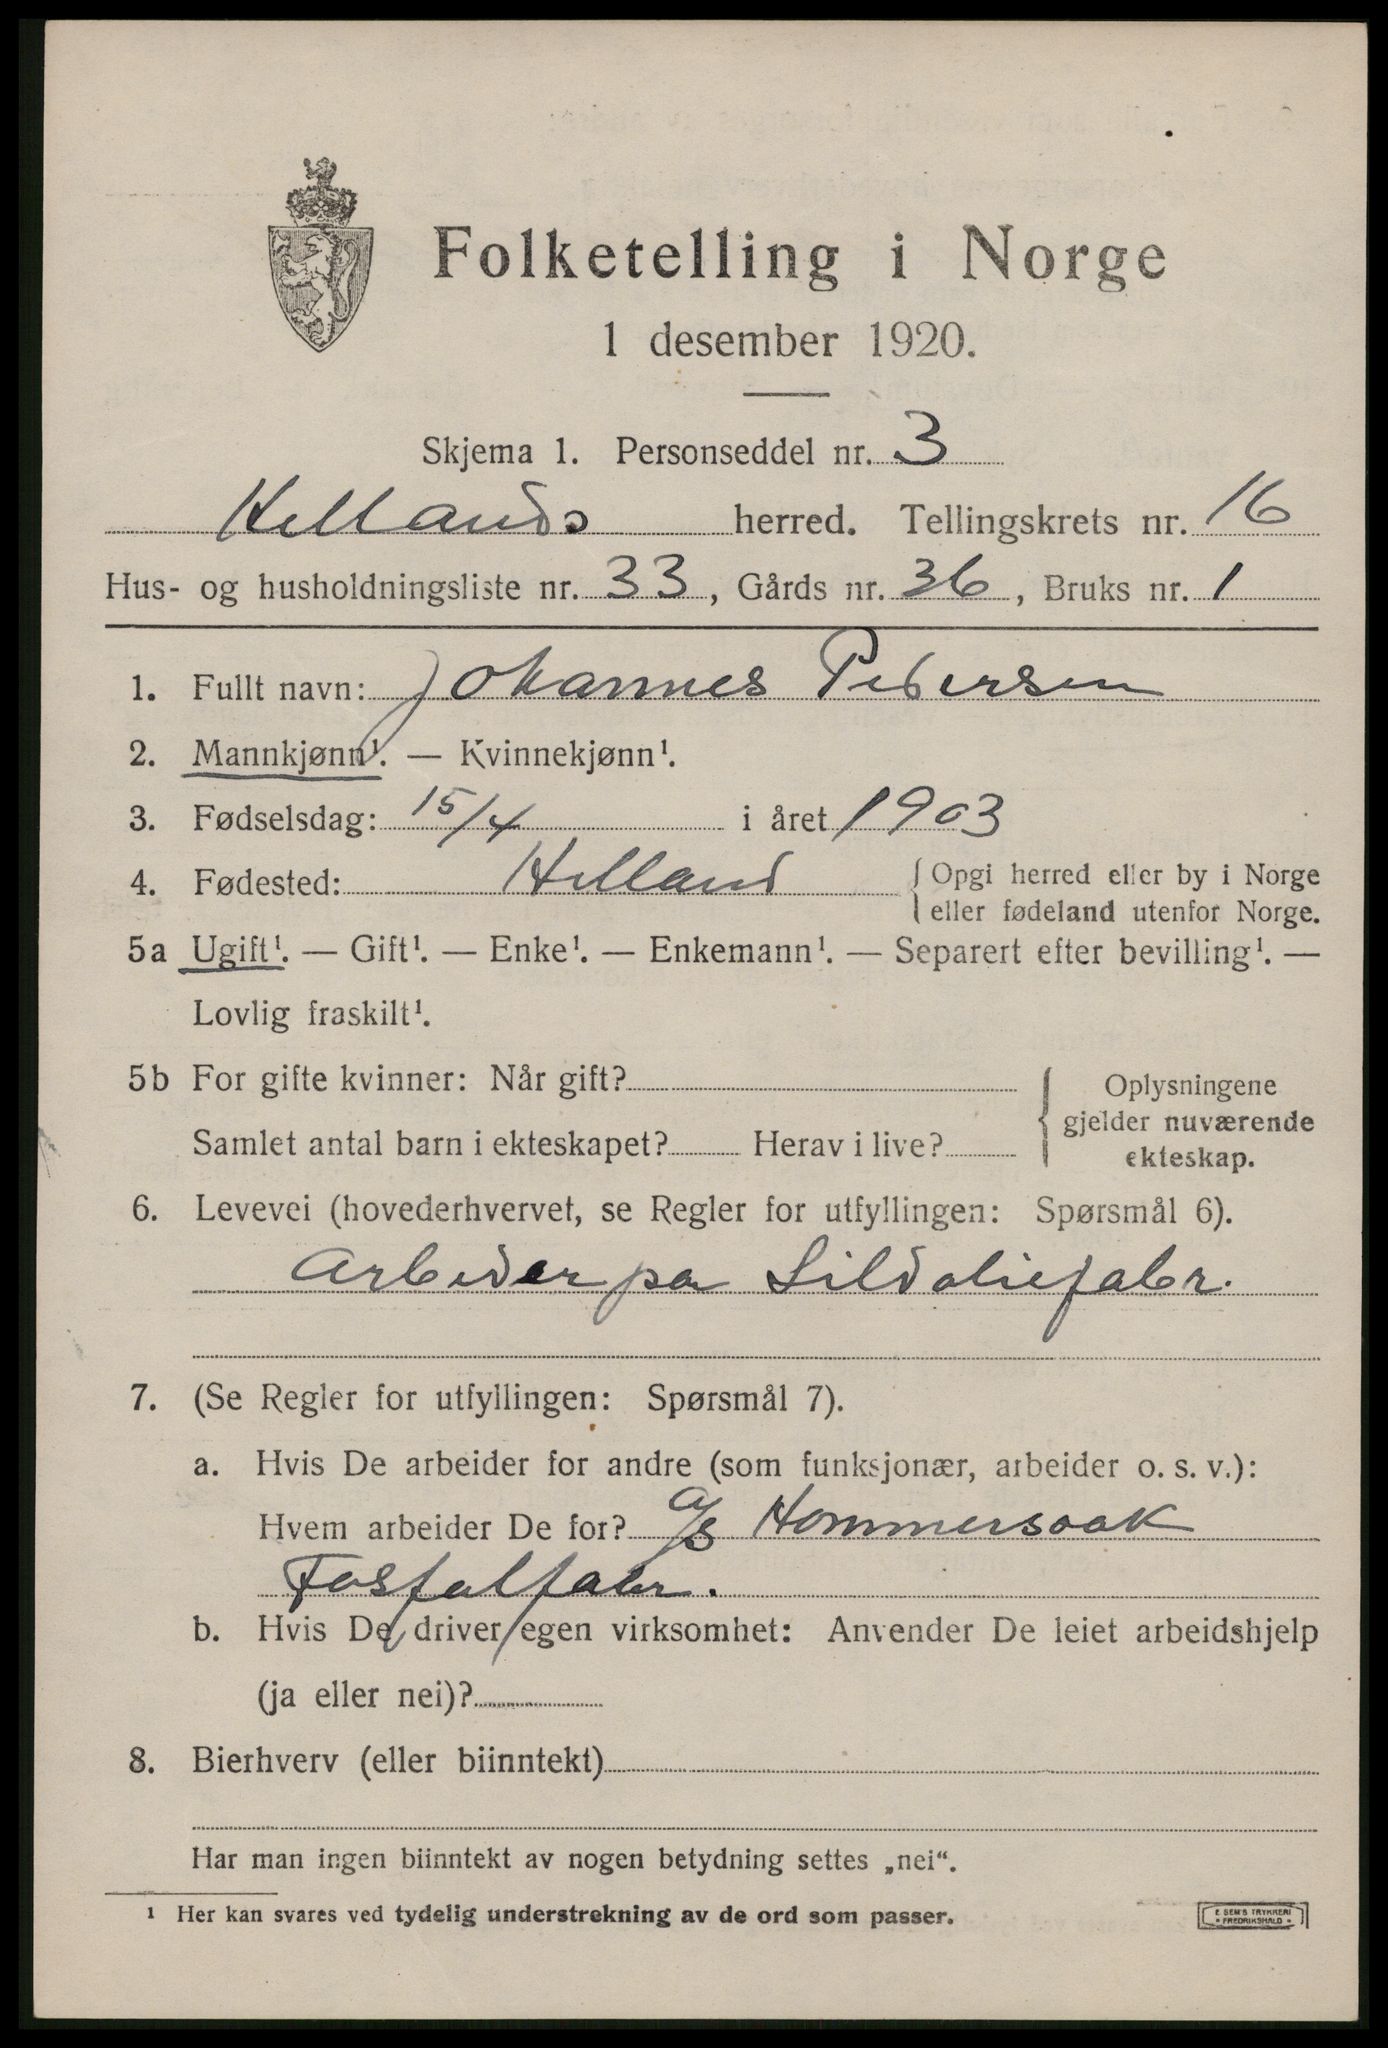 Folketelling i Norge
1 desember 1920.
Skjema 1. Personseddel nr. 3
Hetlands herred. Tellingskrets nr. 16
Hus- og husholdningsliste nr. 33, Gårds nr. 36, Bruks nr. 1
1. Fullt navn: Johannes Pedersen
2. Mannkjønn¹. — Kvinnekjønn¹.
3. Fødselsdag: 15/4 i året 1903
4. Fødested: Hetland { Opgi herred eller by i Norge
eller fødeland utenfor Norge.
5a Ugift¹. — Gift¹. — Enke¹. — Enkemann¹. — Separert efter bevilling¹. —
Lovlig fraskilt¹.
5b For gifte kvinner: Når gift? { Oplysningene
gjelder nuværende
ekteskap.
Samlet antal barn i ekteskapet? Herav i live?
6. Levevei (hovederhvervet, se Regler for utfyllingen: Spørsmål 6).
Arbeider pa Sildoliefabr.
7. (Se Regler for utfyllingen: Spørsmål 7).
a. Hvis De arbeider for andre (som funksjonær, arbeider o. s. v.):
Hvem arbeider De for? A/S Hommersaak
Fosfatfabr.
b. Hvis De driver egen virksomhet: Anvender De leiet arbeidshjelp
(ja eller nei)?
8. Bierhverv (eller biinntekt)
Har man ingen biinntekt av nogen betydning settes „nei“.
¹ Her kan svares ved tydelig understrekning av de ord som passer.
E SEM'S TRYKKERI
• FREDRIKSHALD •